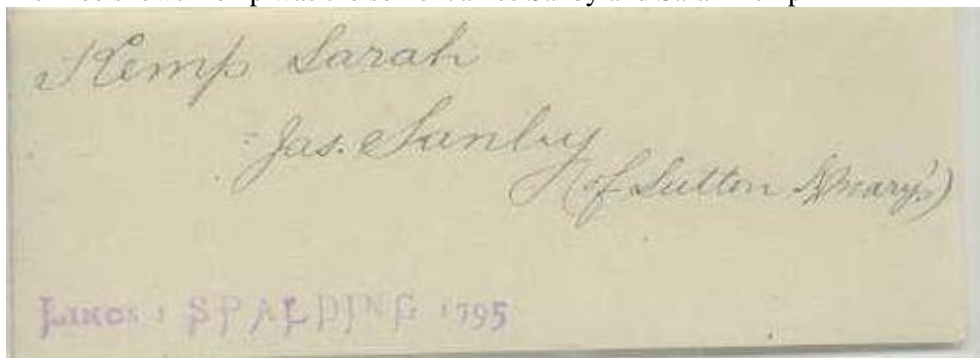 Kemp Sarah
= Jas. Sanby
(of Sutton St Mary's)
LINCS : SPALDING 1795